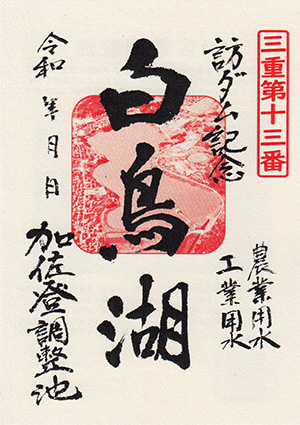 三重第十三番
訪ダム記念
農業用水
工業用水
白鳥湖
令和 年 月 日
加佐登調整池